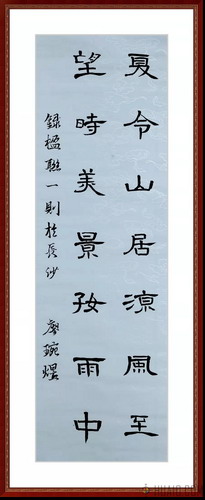 夏令山居涼風至
望時美景孜雨中
録楹聯一則於長沙
廖琬